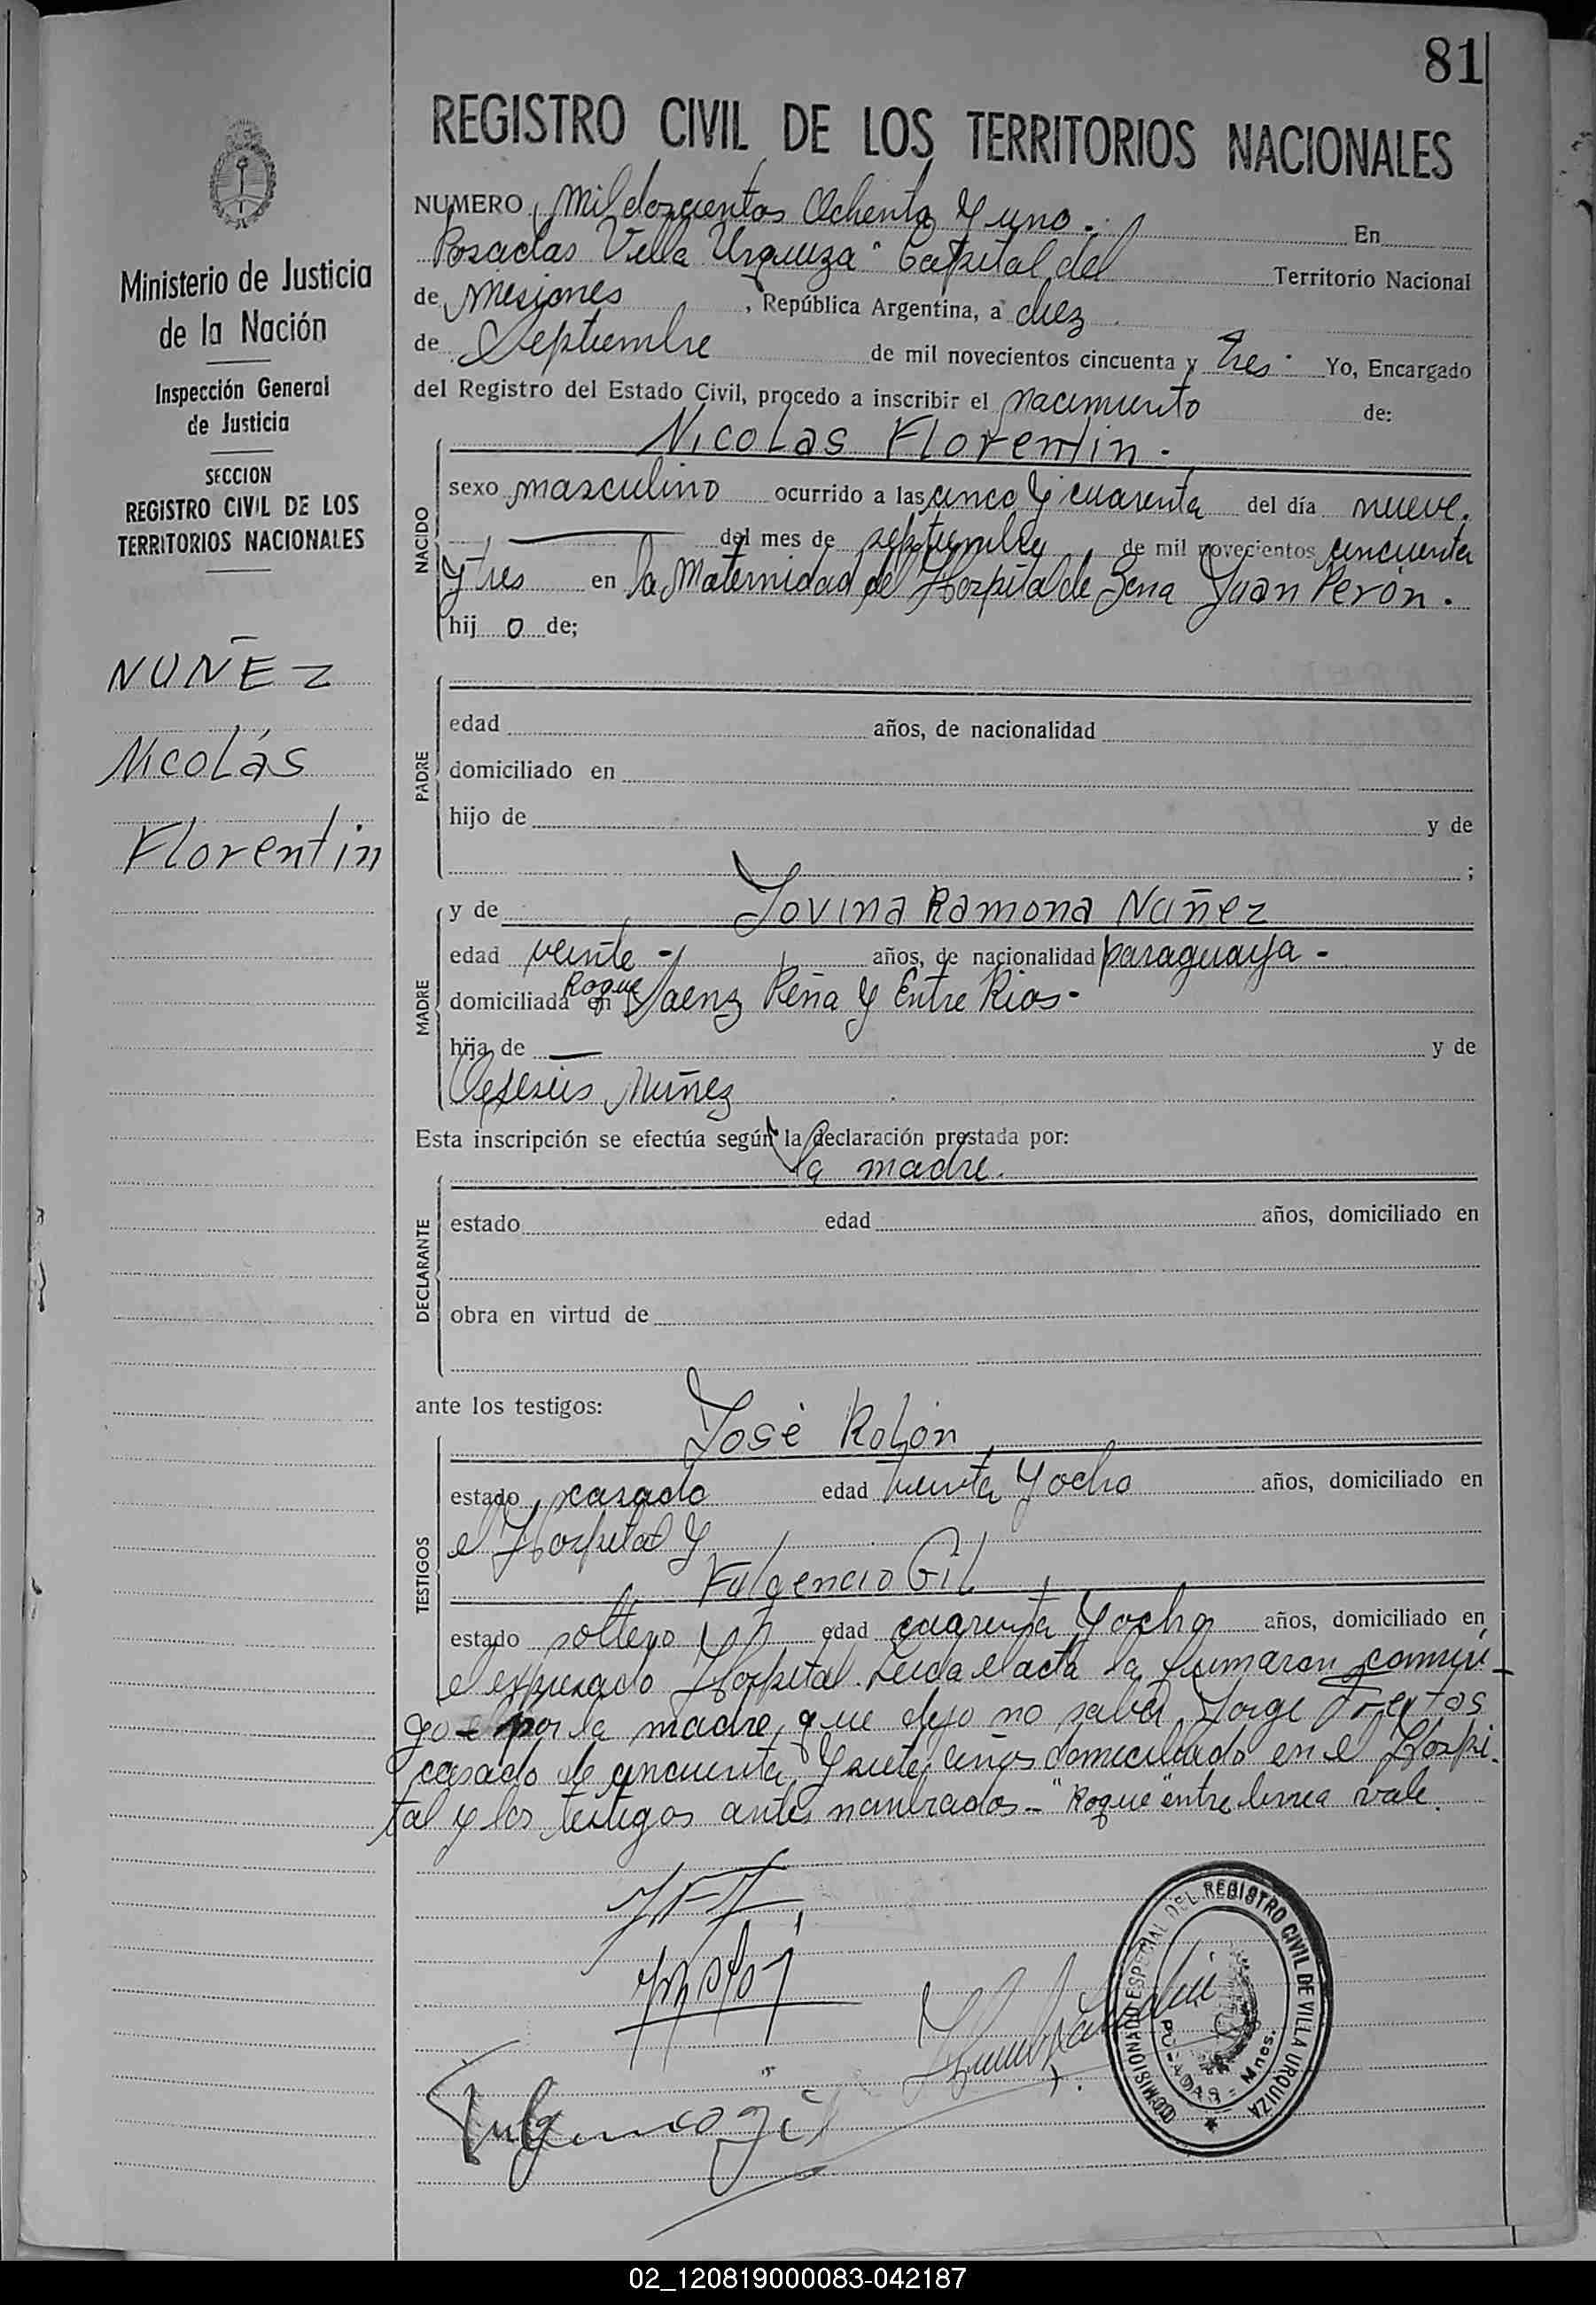 81
REGISTRO CIVIL DE LOS TERRITORIOS NACIONALES
Ministerio de Justicia
de la Nación
Inspección General
de Justicia
SECCION
REGISTRO CIVIL DE LOS
TERRITORIOS NACIONALES
NUÑEZ
Nicolás
Florentin
NUMERO Mil doscientos Ochenta y uno. En
Posadas Villa Urquiza" Capital del Territorio Nacional
de Misiones, República Argentina, a diez
de Septiembre de mil novecientos cincuenta y tres. Yo, Encargado
del Registro del Estado Civil, procedo a inscribir el nacimiento de:
NACIDO
Nicolas Florentin.
sexo masculino ocurrido a las cinco y cuarenta del día nueve.
del mes de septiembre de mil novecientos cincuenta
y tres en la Maternidad del Hospital de Gena Juan Perón.
hij o de;
PADRE
edad años, de nacionalidad
domiciliado en
hijo de y de
;
MADRE
y de Jovina Ramona Nuñez
edad veinte - años, de nacionalidad paraguaya -
domiciliada en Roque Saenz Peña y Entre Rios -
hija de — y de
Nuñez
Esta inscripción se efectúa según la declaración prestada por:
la madre.
DECLARANTE
estado edad años, domiciliado en
obra en virtud de
ante los testigos:
TESTIGOS
José Rolón
estado casado edad treinta y ocho años, domiciliado en
el Hospital y
Fulgencio Gil
estado soltero edad cuarenta y ocho años, domiciliado en
el expresado Hospital. Leida el acta la firmaron conmi-
go por la madre, que dijo no saber, Jorge Fretes
casado de cincuenta y siete años domiciliado en el Hospi-
tal y los testigos antes nombrados - "Roque" entre linea vale.
Fulgencio Gil
COMISIONADO ESPECIAL DEL REGISTRO CIVIL DE VILLA URQUIZA
POSADAS - Mnes.
02_120819000083-042187